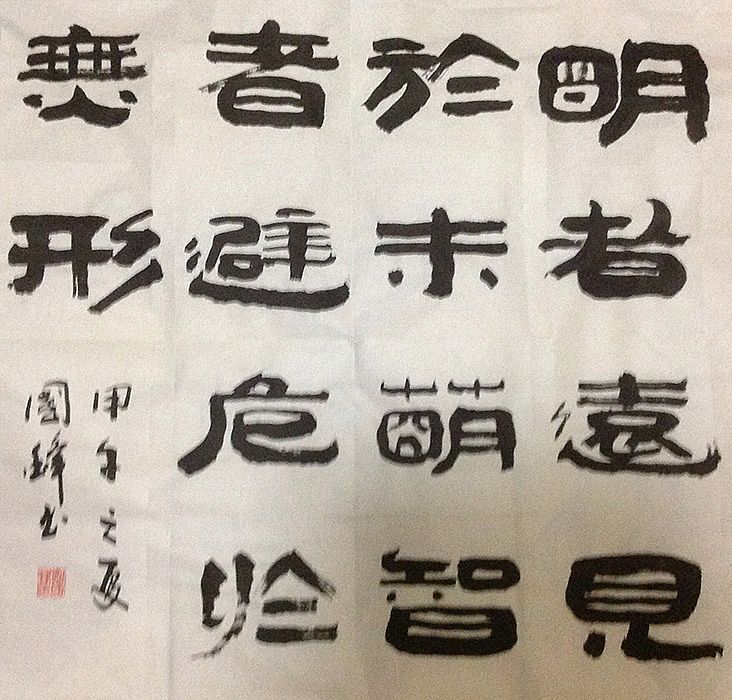 明者遠見
於未萌智
者避危於
無形
甲午之夏
國鋒書